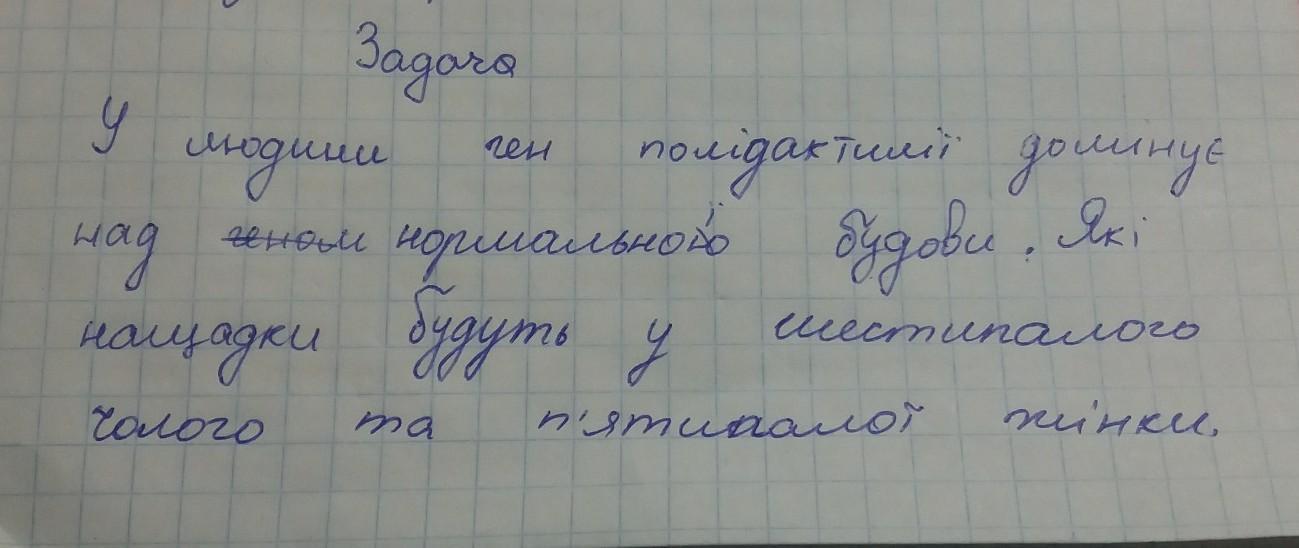 Задача
У людини ген полідактилії домінує
над геном нормальної будови. Які
нащадки будуть у шестипалого
чолого та п'ятипалої жінки.